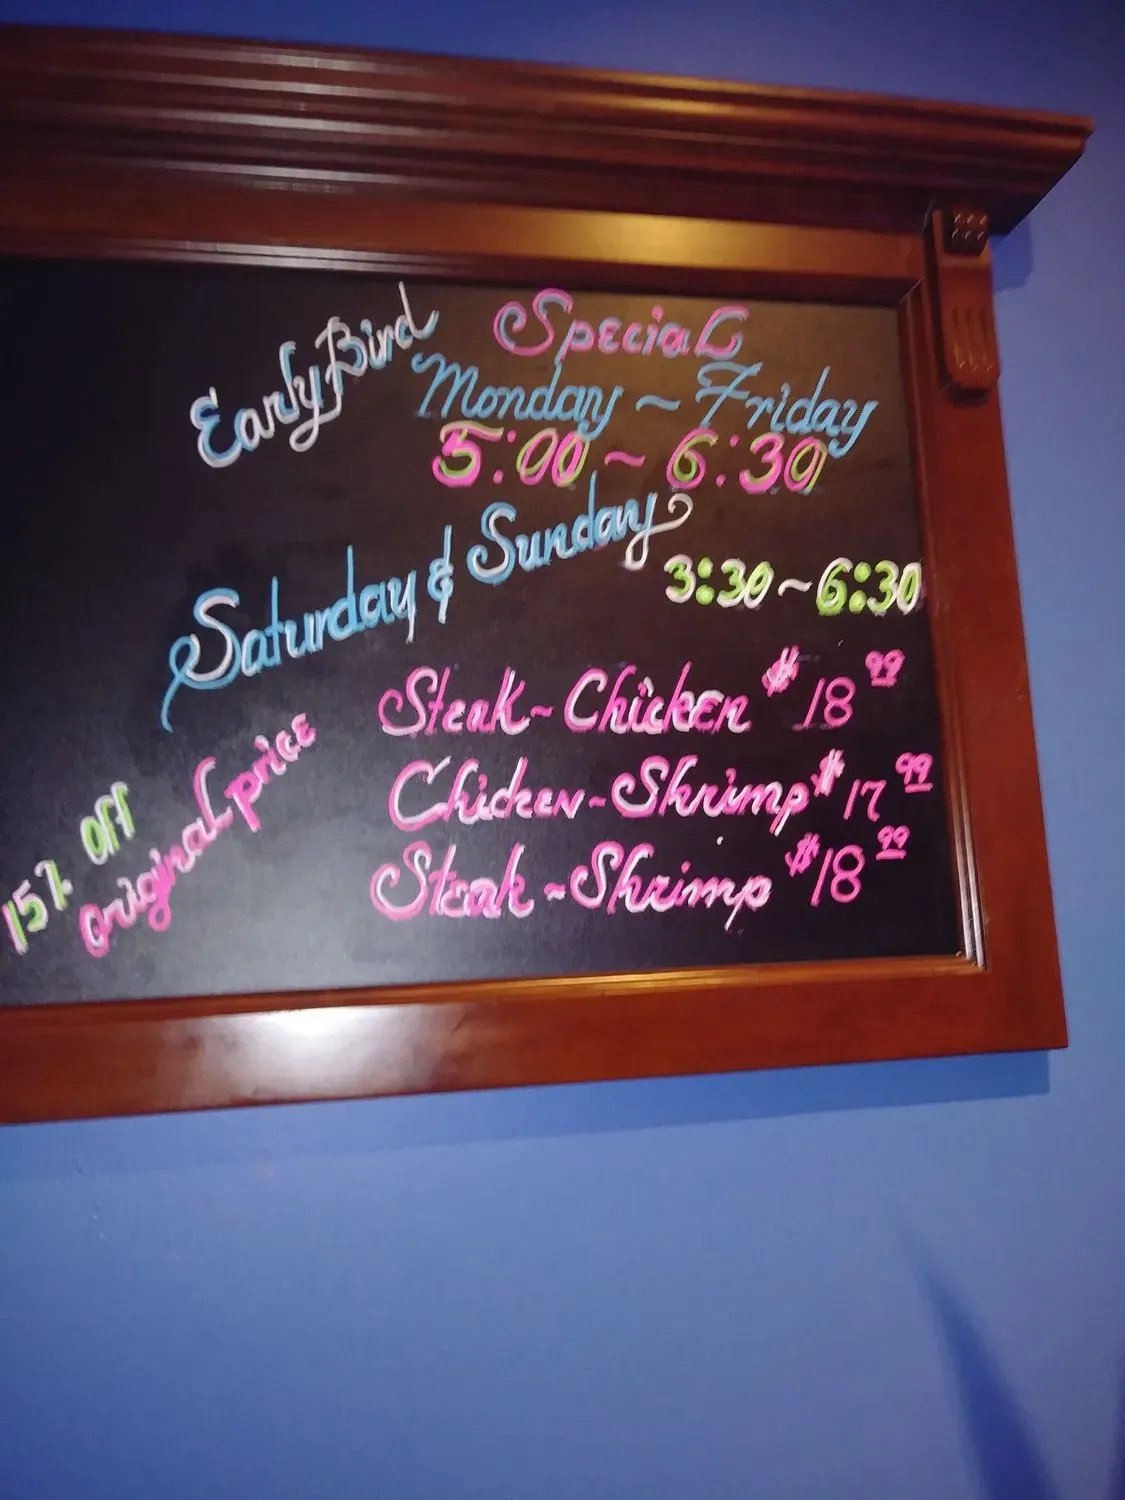 Early Bird Special
Monday ~ Friday
5:00 ~ 6:30
Saturday & Sunday
3:30 ~ 6:30
Steak ~ Chicken $18 99
Chicken ~ Shrimp $17 99
Steak ~ Shrimp $18 99
15% OFF
original price